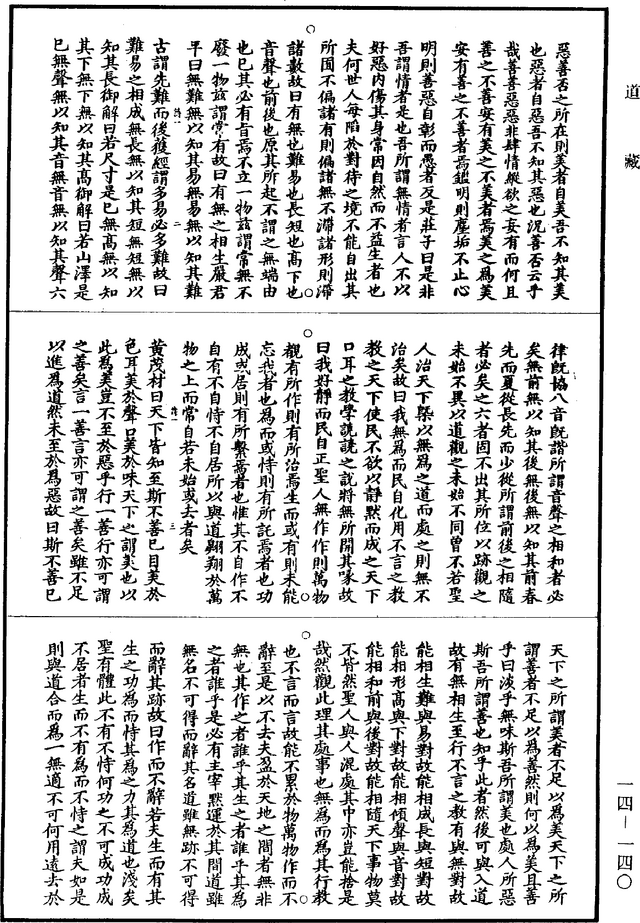 道藏
惡善否之所在則美者自美吾不知其美
也惡者自惡吾不知其惡也況善否云乎
哉善善惡惡非肆情縱欲之妄有而何且
善之不善安有美之不美者焉美之為美
安有善之不善者焉鑑明則塵垢不止心
明則善惡自彰而愚者反是莊子曰是非
吾謂情者是也吾所謂無情者言人不以
好惡內傷其身常因自然而不益生者也
夫何世人每陷於對待之境不能自出其
所囿不偏諸有則偏諸無不滯諸形則滯
諸數故曰有無也難易也長短也高下也
音聲也前後也原其所起不謂之無端由
也已其必有言焉不立一物茲謂常無不
廢一物茲謂常有故曰有無之相生嚴君
平曰無難無以知其易無易無以知其難
古謂先難而後獲經謂多易必多難故曰
難易之相成無長無以知其短無短無以
知其長御解曰若尺寸是已無高無以知
其下無下無以知其高御解曰若山澤是
已無聲無以知其音無音無以知其聲六
律旣協八音旣諧所謂音聲之相和者必
矣無前無以知其後無後無以知其前春
先而夏從長先而少從所謂前後之相隨
者必矣之六者因不出其所位以跡觀之
未始不異以道觀之未始不同曾不若聖
人治天下槩以無為之道而處之則無不
治矣故曰我無為而民自化用不言之教
教之天下使民不欲以靜默而成之天下
口耳之教學說譊之說將無所開其喙故
曰我好靜而民自正聖人無作作則萬物
覩有所作則有所治焉生而或有則未能
忘我者也為而或恃則有所託焉者也功
成或居則有所繫焉者也惟其不自作不
自有不自恃不自居所以與道翺翔於萬
物之上而常自若未始或去者矣
黃茂材曰天下皆知至斯不善已目美於
色耳美於聲口美於味天下之謂美也以
此為美豈不至於惡乎行一善行亦可謂
之善矣言一善言亦可謂之善矣雖不足
以進為道然未至於為惡故曰斯不善已
天下之所謂美者不足以為美天下之所
謂善者不足以為善然則何以為美且善
乎曰淡乎無味斯吾所謂美也處人所惡
斯吾所謂善也知乎此者然後可與入道
故有無相生至行不言之教有與無對故
能相生難與易對故能相成長與短對故
能相形高與下對故能相傾聲與音對故
能相和前與後對故能相隨天下事物莫
不皆然聖人與人混處其中亦豈能捨是
哉然觀此理其處事也無為而為其行教
也不言而言故能不累於物萬物作而不
辭至是以不去夫盈於天地之間者無非
無也其作之者誰乎其生之者誰乎其為
之者誰乎是必有主宰默運於其間道雖
無名不可得而辭其名道雖無跡不可得
而辭其跡故曰作而不辭若夫生而有其
生之功為而恃其為之力其為道也淺矣
聖有體此不有不恃何功之不可成功成
不居者生而不有為而不恃之謂夫如是
則與道合而為一無適不可何用遠去於
一四—一四〇